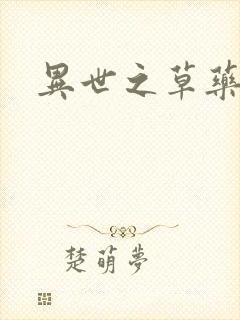 異世之草藥
楚萌夢